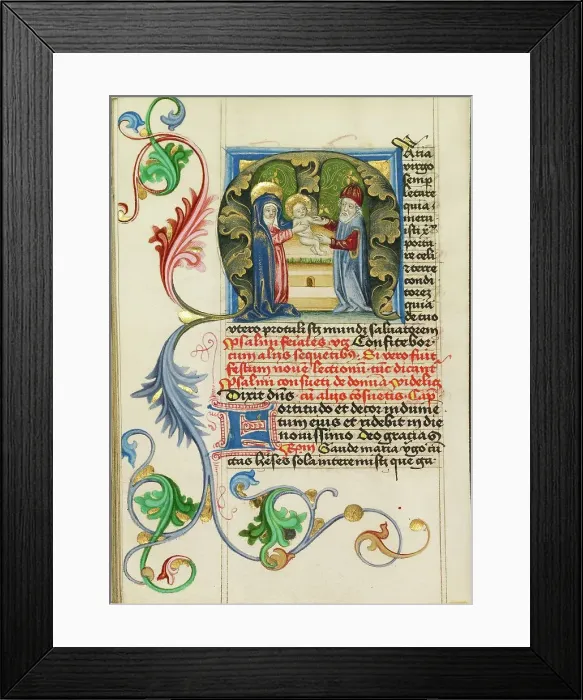 Maria
virgo
semp
letare
quia
meru
isti xp̄m
porta
re celi
z terre
condi
torez
quia
de tuo
vtero protulisti mundi saluatorem
psalmi feriales vz Confitebor
cum alijs sequētibꝰ. Si vero fuit
festum noue lectionū tūc dicunt̄
psalmi consueti de domīa videlicꝫ
Dixit dn̄s cū alijs cōsuetis Cap̄
Fortitudo et decor indumē
tum eius et ridebit in die
nouissimo Deo gracias
Gaude maria v̄go cū
ctas h̄eses sola interemisti que ga